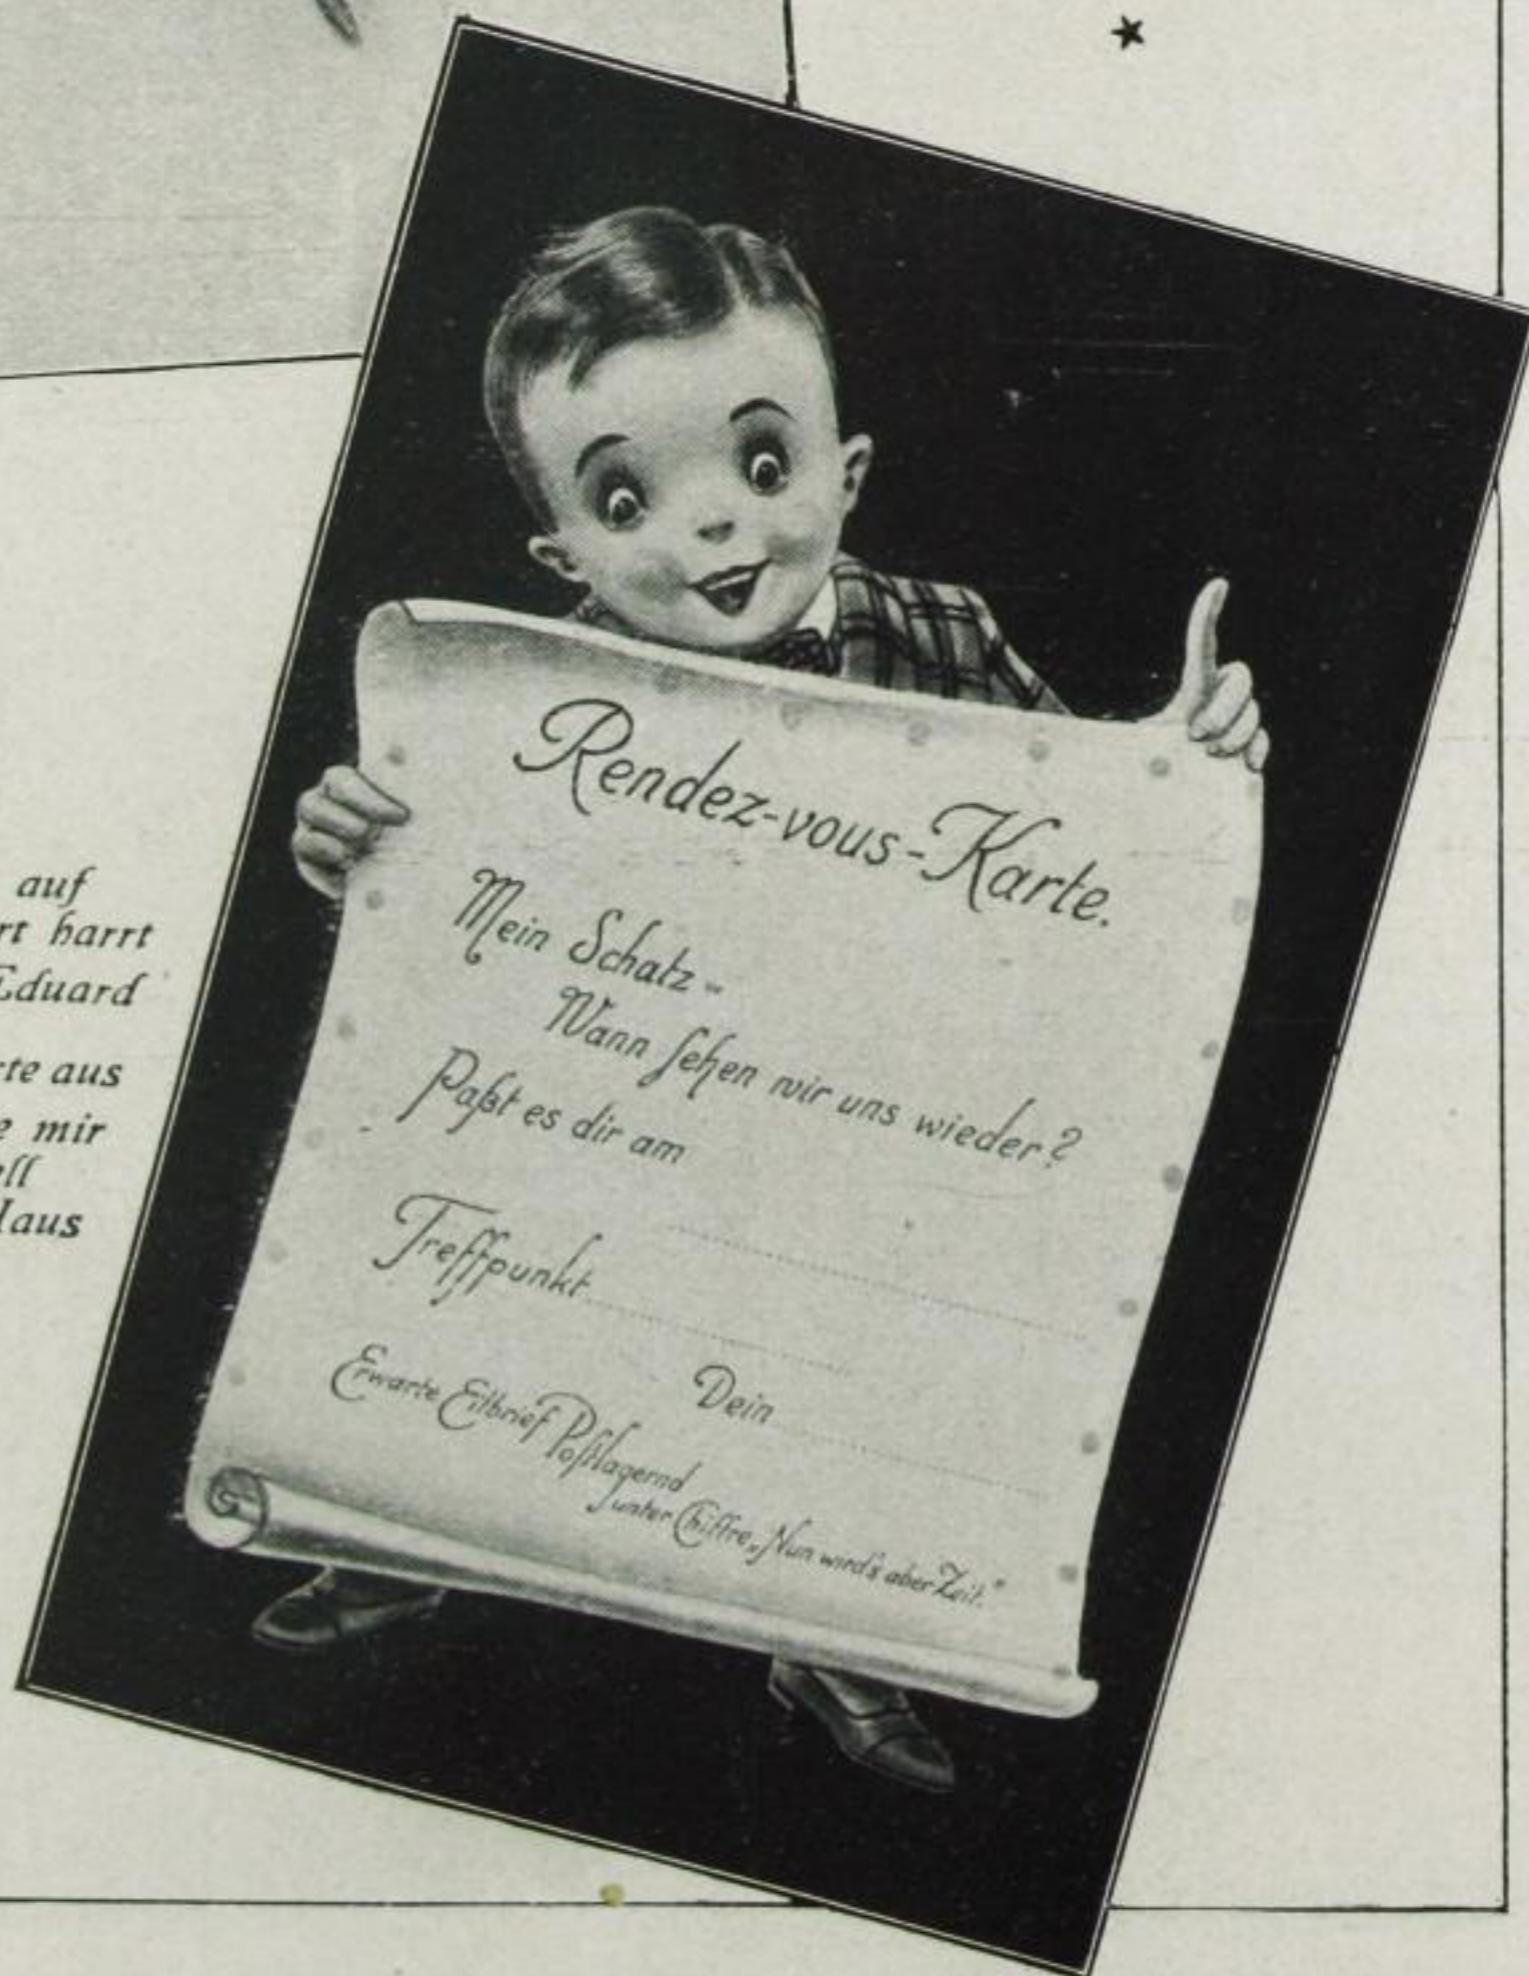 auf
rt harrt
Eduard
te aus
e mir
ll
aus
Rendez-vous-Karte.
Mein Schatz -
Wann sehen wir uns wieder?
Paßt es dir am
Treffpunkt
Dein
Erwarte Eilbrief Postlagernd
unter Chiffre „Nun wird's aber Zeit."